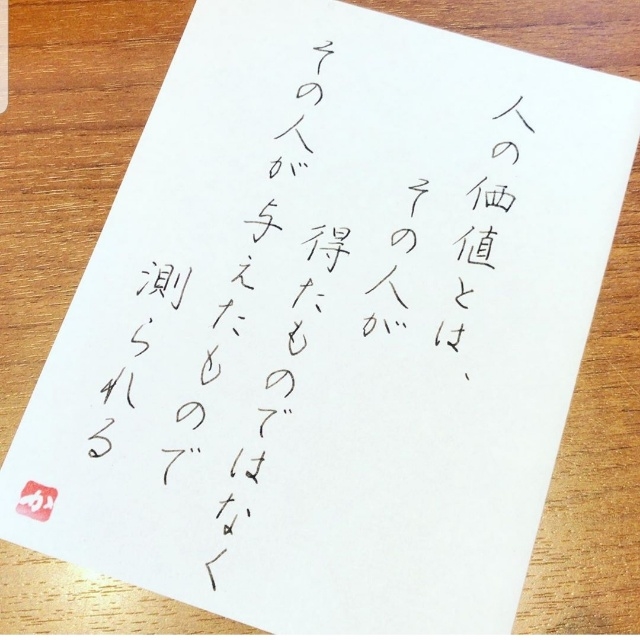 人の価値とは、
その人が
得たものではなく
その人が与えたもので
測られる
か